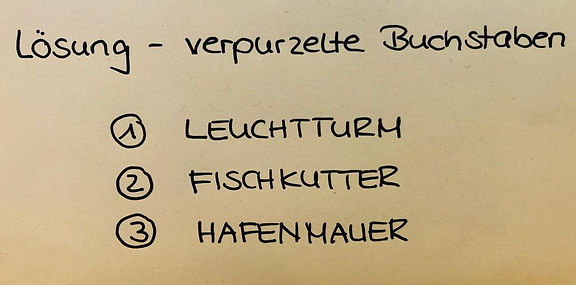 Lösung - verpurzelte Buchstaben
1 LEUCHTTURM
2 FISCHKUTTER
3 HAFENMAUER